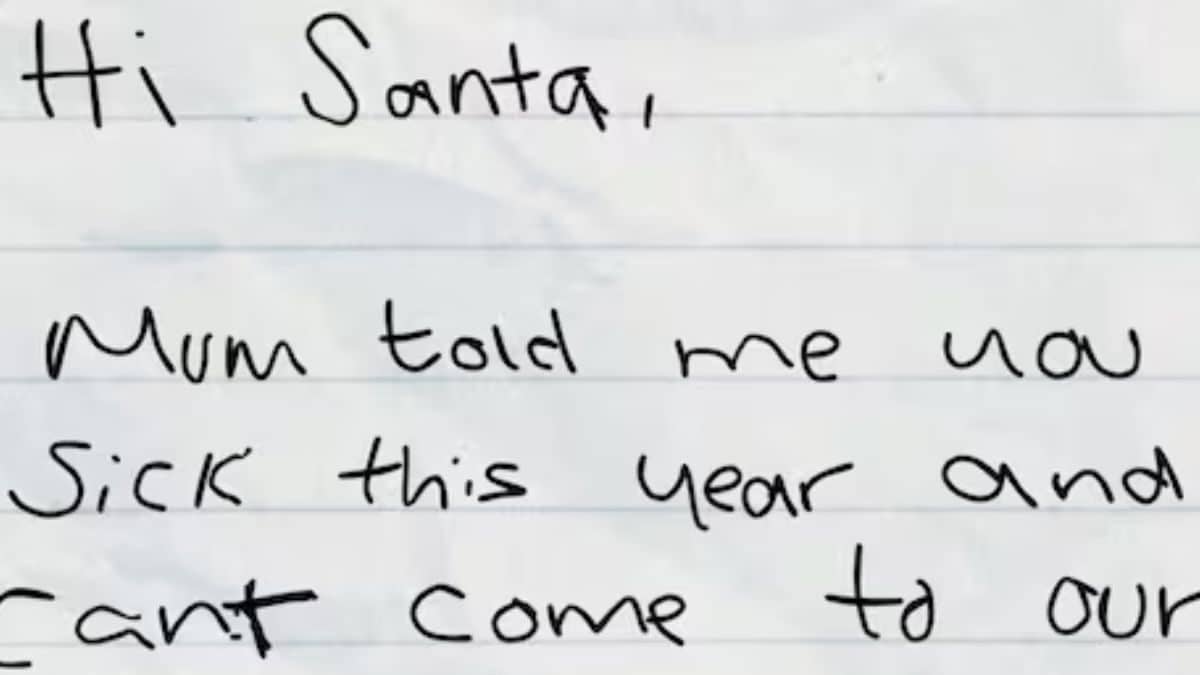 Hi Santa,
Mum told me you
Sick this year and
cant come to our